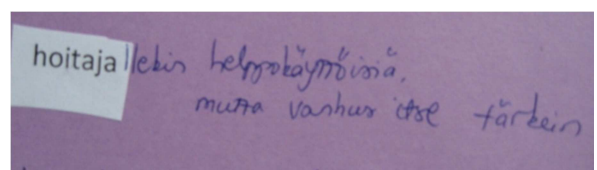 hoitajallekin helppokäyttöisiä,
mutta vanhus itse tärkein